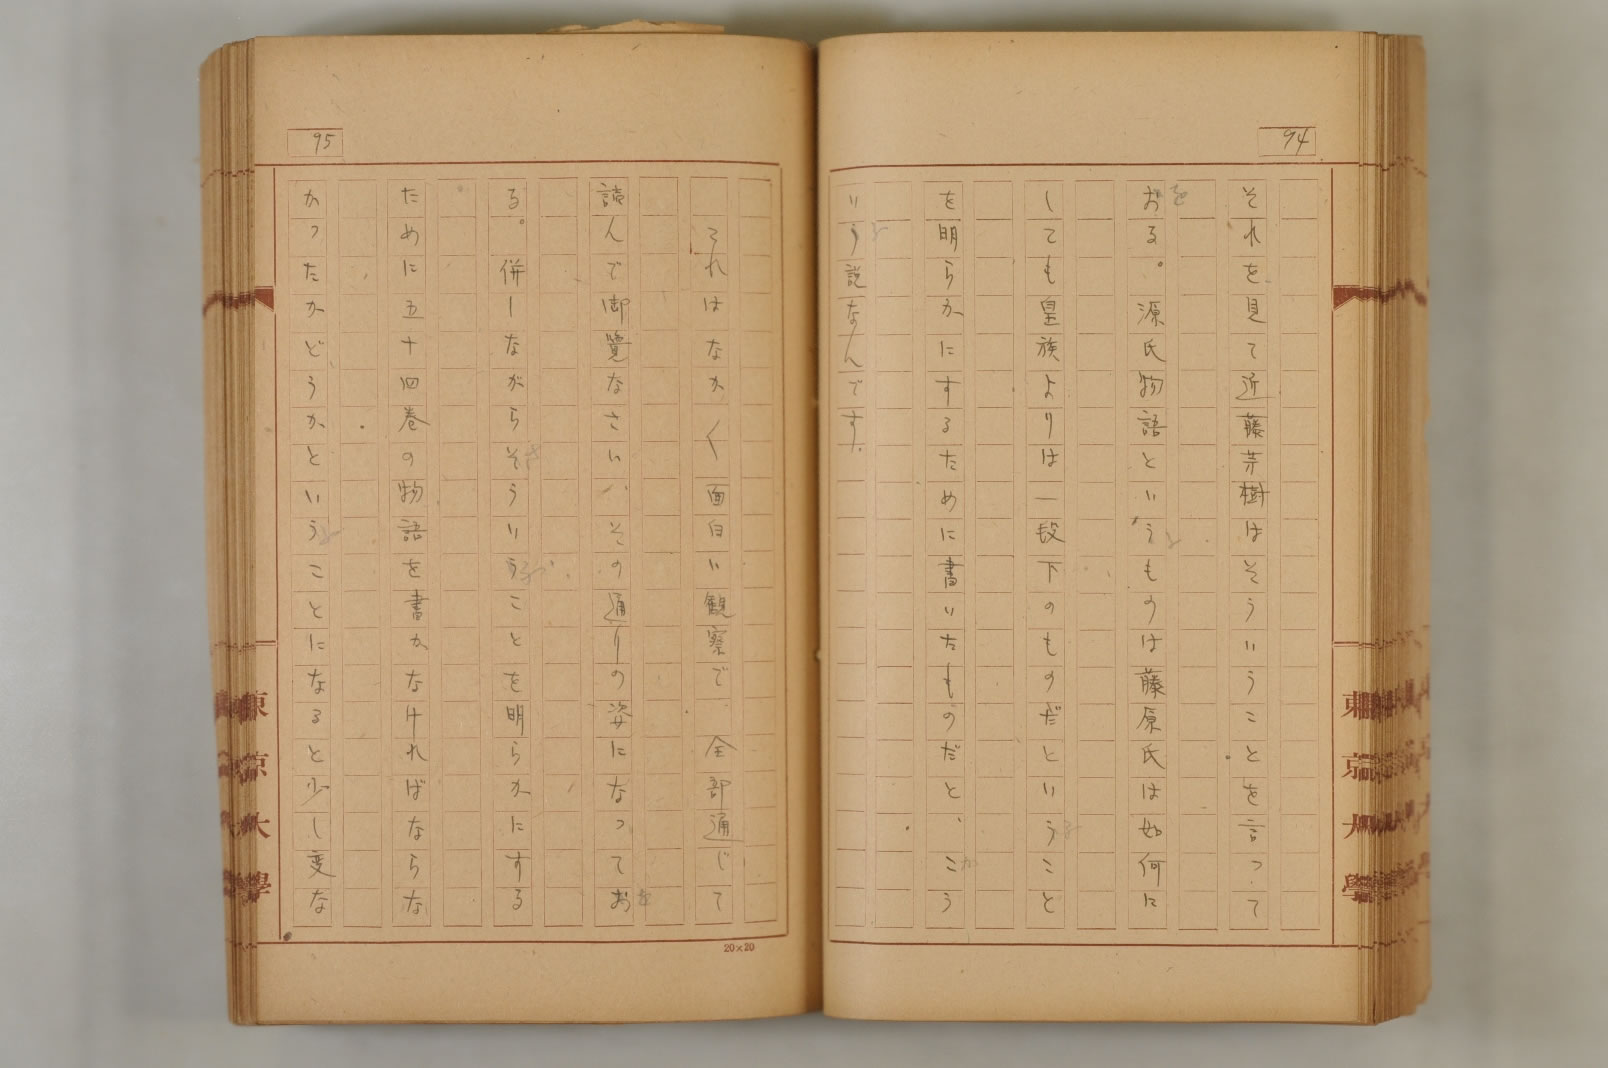 94
それを見て近藤芳樹はそういうことを言って
おる。源氏物語というものは藤原氏は如何に
しても皇族よりは一段下のものだということ
を明らかにするために書いたものだと、こう
いう説なんです。
95
これはなか〱面白い観察で全部通じて
読んで御覧なさい、その通りの姿になってお
る。併しながらそういうことを明らかにする
ために五十四巻の物語を書かなければならな
かったかどうかということになると少し変な
20×20
東京大學
東京大學